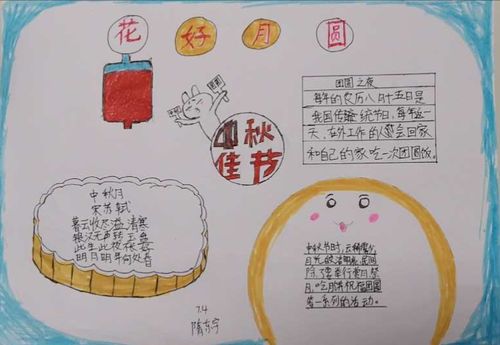 花好月圆
团圆
中秋
佳节
团圆之夜
每年的农历八月十五日是
我国传统节日,每年这
天,在外工作的人都会回家
和自己的家吃一次团圆饭。
中秋月
宋苏轼
暮云收尽溢清寒
银汉无声转玉盘
此生此夜不长好
明月明年何处看
中秋节时,云稀雾少
月光皎洁明亮,民间
除了要举行赏月祭
月,吃月饼祝福团圆
等一系列的活动。
7.4
隋东宇